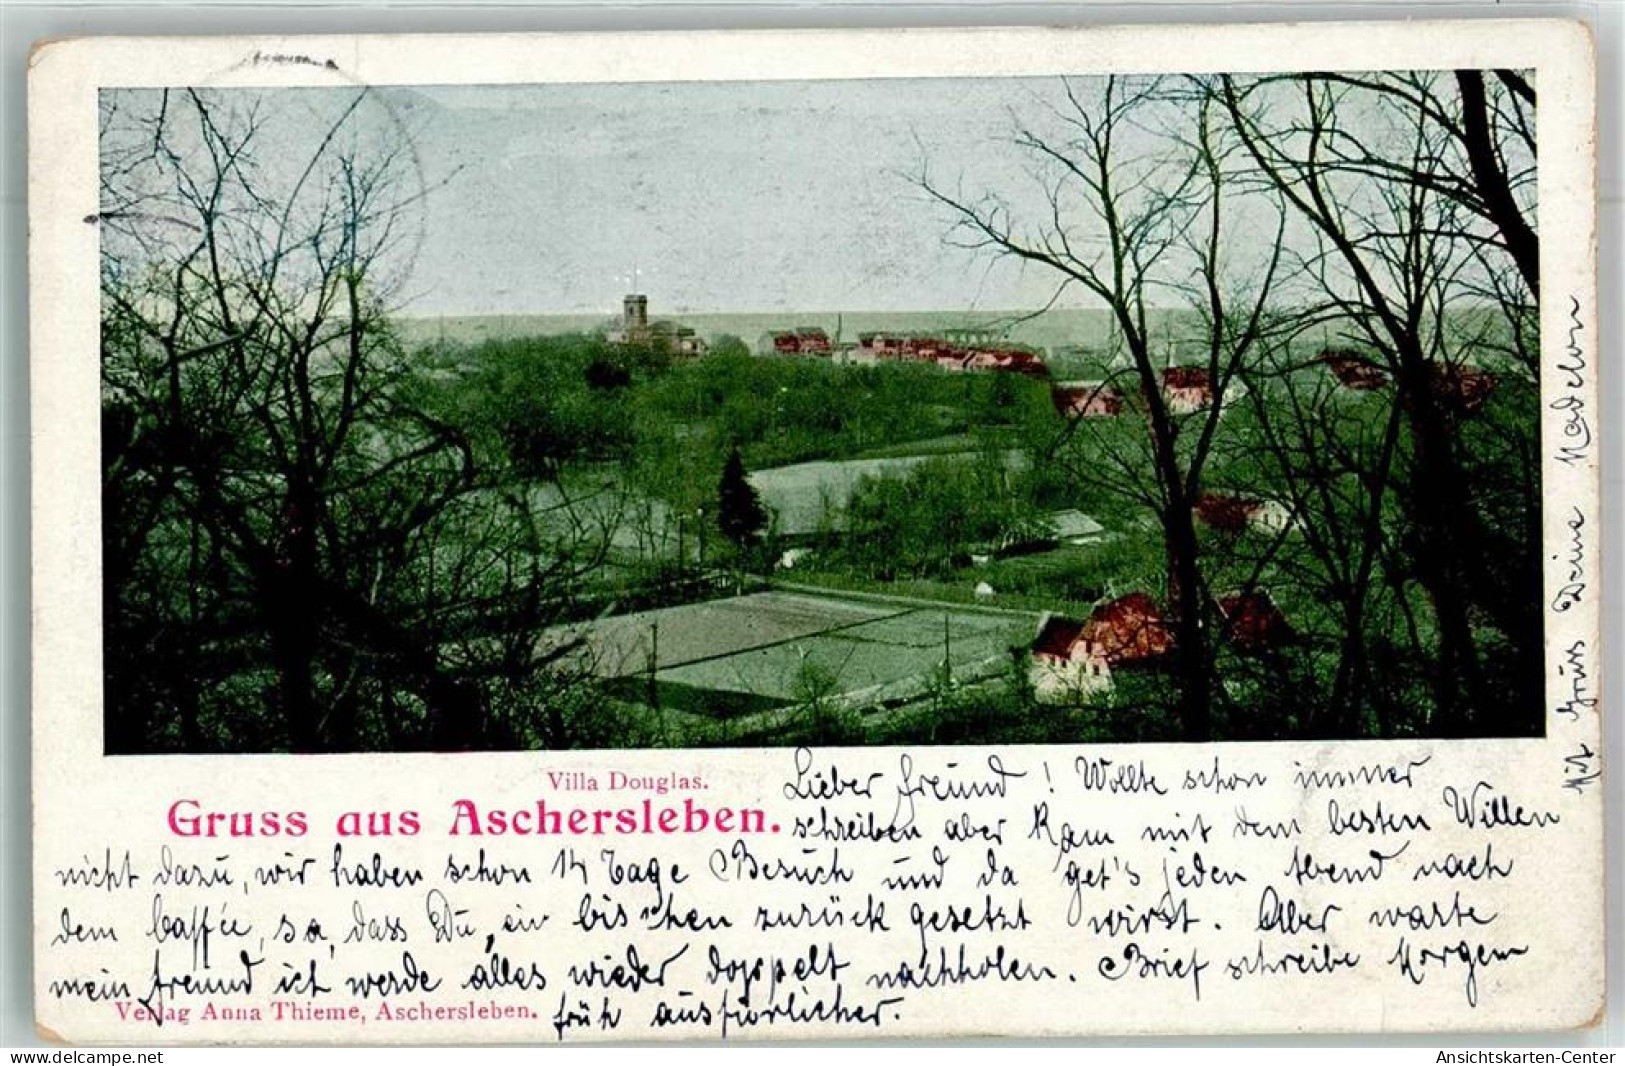 Villa Douglas.
Gruss aus Aschersleben.
Lieber Freund! Wollte schon immer
schreiben aber kam mit dem besten Willen
nicht dazu, wir haben schon 14 Tage Besuch und da get's jeden Abend nach
dem Caffée, so, dass Du, ein bischen zurück gesetzt wirst. Aber warte
mein Freund ich werde alles wieder doppelt nachholen. Brief schreibe Morgen
früh ausfürlicher.
Mit Gruss Deine
Verlag Anna Thieme, Aschersleben.
delcampe.net
Ansichtskarten-Center